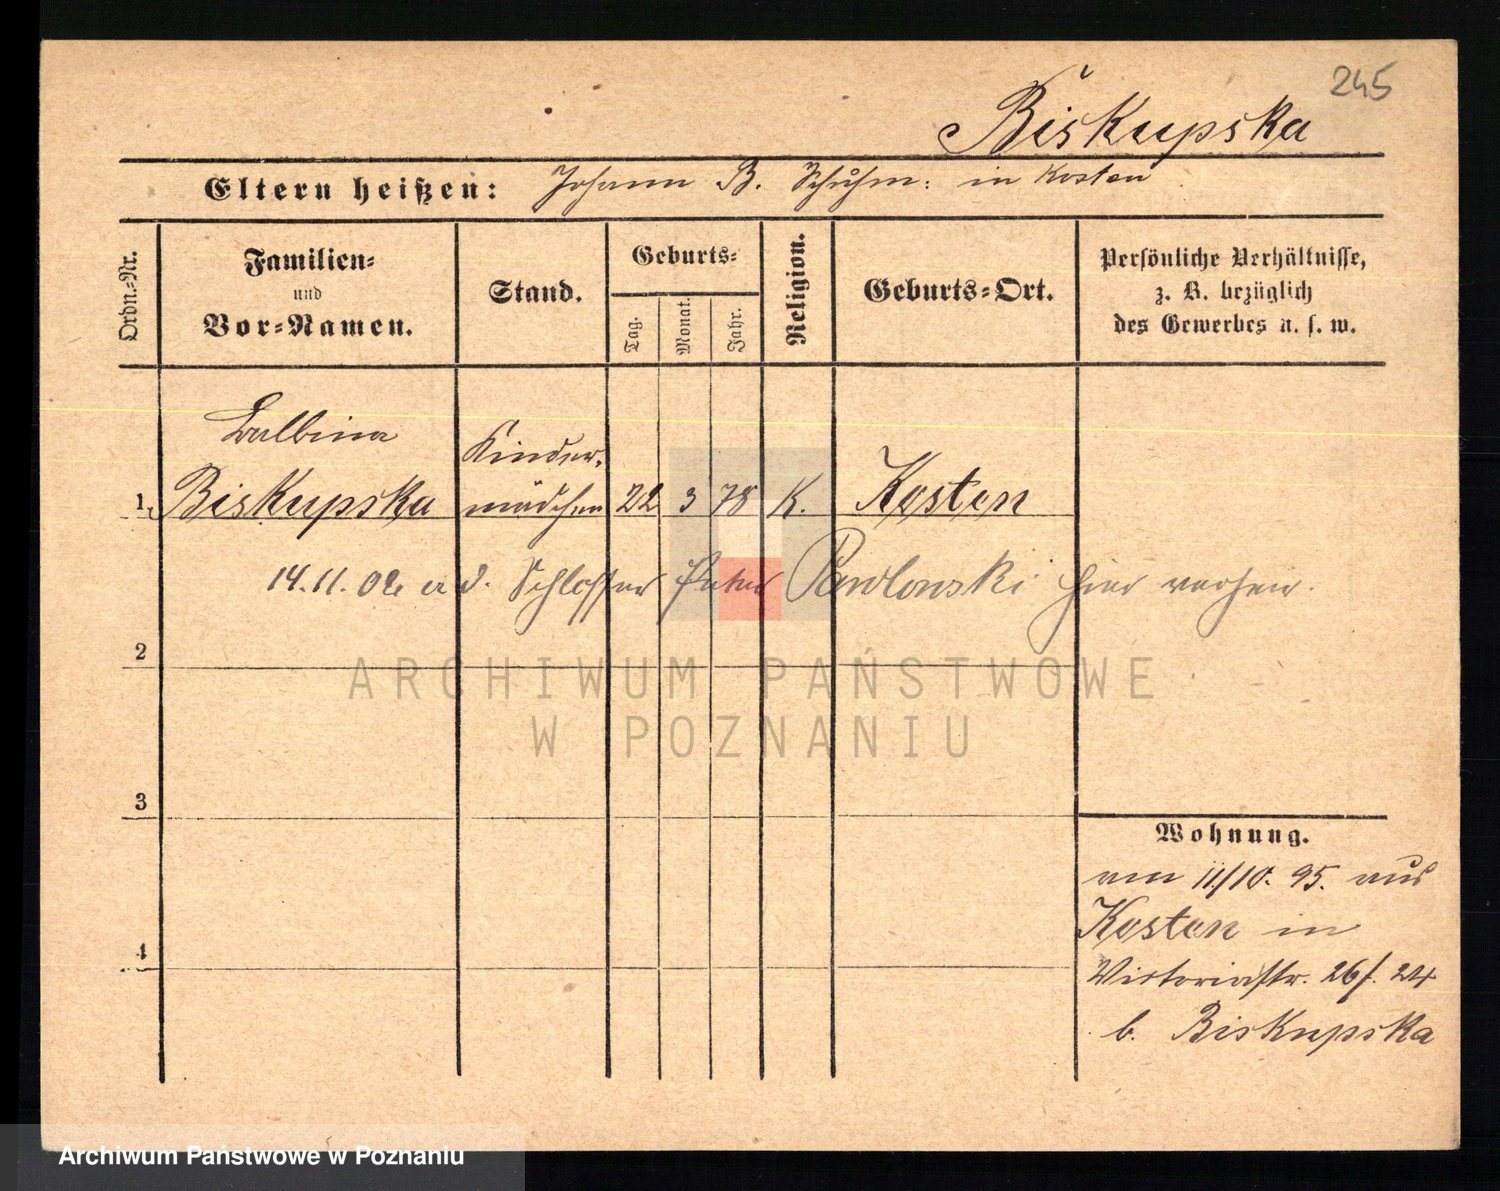 245
Biskupska
Eltern heißen: Johann B. Schuhm: in Kosten
Ordn.-Nr.
Familien-
und
Vor-Namen.
Stand.
Geburts-
Tag.
Monat.
Jahr.
Religion.
Geburts-Ort.
Persönliche Verhältnisse,
z. B. bezüglich
des Gewerbes u. s. w.
Balbina
Kinder-
1. Biskupska mädchen 22 3 78 K. Kosten
14.11.02 a d. Schlosser Peter Pawlowski hier verhei.
2
3
4
Wohnung.
am 11/10. 95. aus
Kosten in
Victoriastr. 26/. 24
b. Biskupska
ARCHIWUM PAŃSTWOWE
W POZNANIU
Archiwum Państwowe w Poznaniu